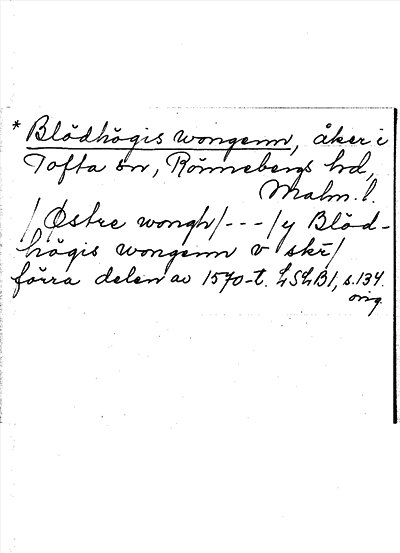 * Blödhögis wongenn, åker i
Tofta sn, Rönnebergs hd,
Malm. l.
/ Østre wongh / - - - / y Blöd-
högis wongenn v skr̄ /
förra delen av 1570-t. LSLB1, s. 134.
orig.